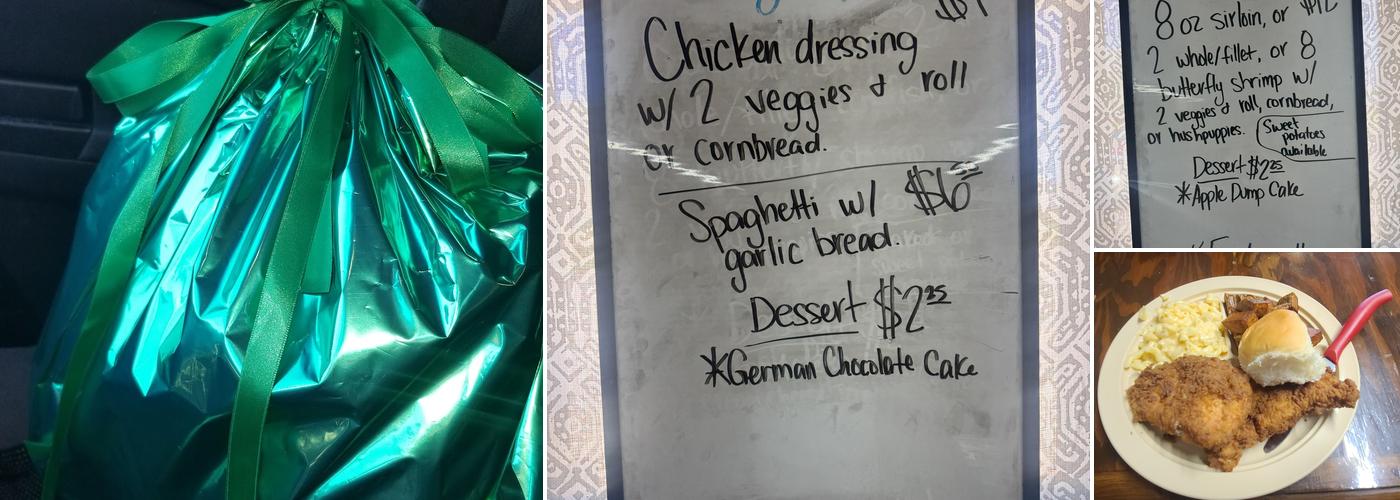 Chicken dressing
w/ 2 veggies & roll
or cornbread.
Spaghetti w/ $6
garlic bread.
Dessert $2.25
*German Chocolate Cake
8 oz sirloin, or $12
2 whole/fillet, or 8
butterfly shrimp w/
2 veggies & roll, cornbread,
or hushpuppies.
Sweet
potatoes
available
Dessert $2.25
*Apple Dump Cake